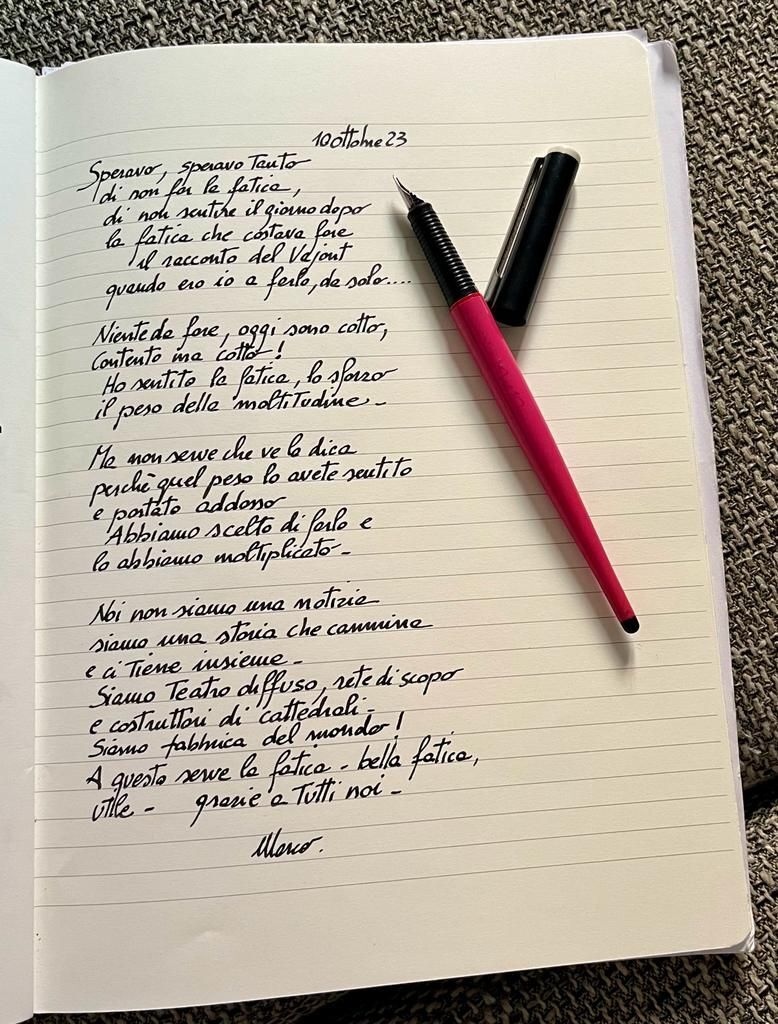 10 ottobre 23
Speravo, speravo tanto
di non far la fatica,
di non sentire il giorno dopo
la fatica che costava fare
il racconto del Vajont
quando ero io a farlo, da solo....
Niente da fare, oggi sono cotto,
Contento ma cotto!
Ho sentito la fatica, lo sforzo
il peso della moltitudine -
Ma non serve che ve lo dica
perchè quel peso lo avete sentito
e portato addosso
Abbiamo scelto di farlo e
lo abbiamo moltiplicato -
Noi non siamo una notizia
siamo una storia che cammina
e ci tiene insieme -
Siamo Teatro diffuso, rete di scopo
e costruttori di cattedrali -
Siamo fabbrica del mondo!
A questo serve la fatica - bella fatica,
utile - grazie a tutti noi -
Marco.